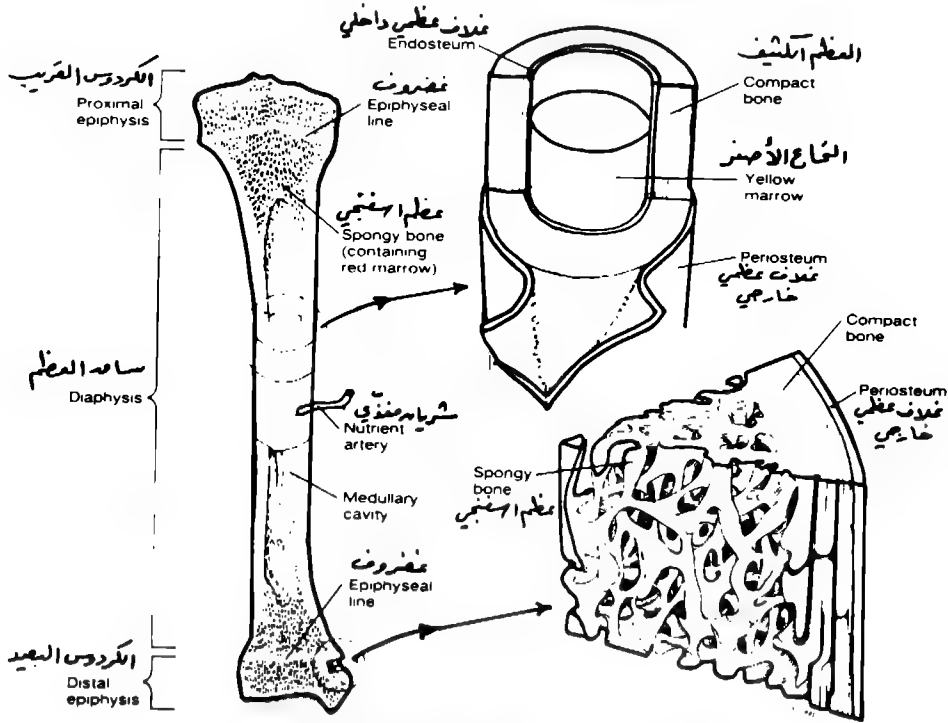 الكردوس القريب
Proximal
epiphysis
غضروف
Epiphyseal
line
عظم اسفنجي
Spongy bone
(containing
red marrow)
ساعد العظم
Diaphysis
شريان مغذّي
Nutrient
artery
Medullary
cavity
غضروف
Epiphyseal
line
الكردوس البعيد
Distal
epiphysis
غلاف عظمي داخلي
Endosteum
العظم الكثيف
Compact
bone
النخاع الأصفر
Yellow
marrow
Periosteum
غلاف عظمي
خارجي
Compact
bone
Periosteum
غلاف عظمي
خارجي
Spongy
bone
عظم اسفنجي